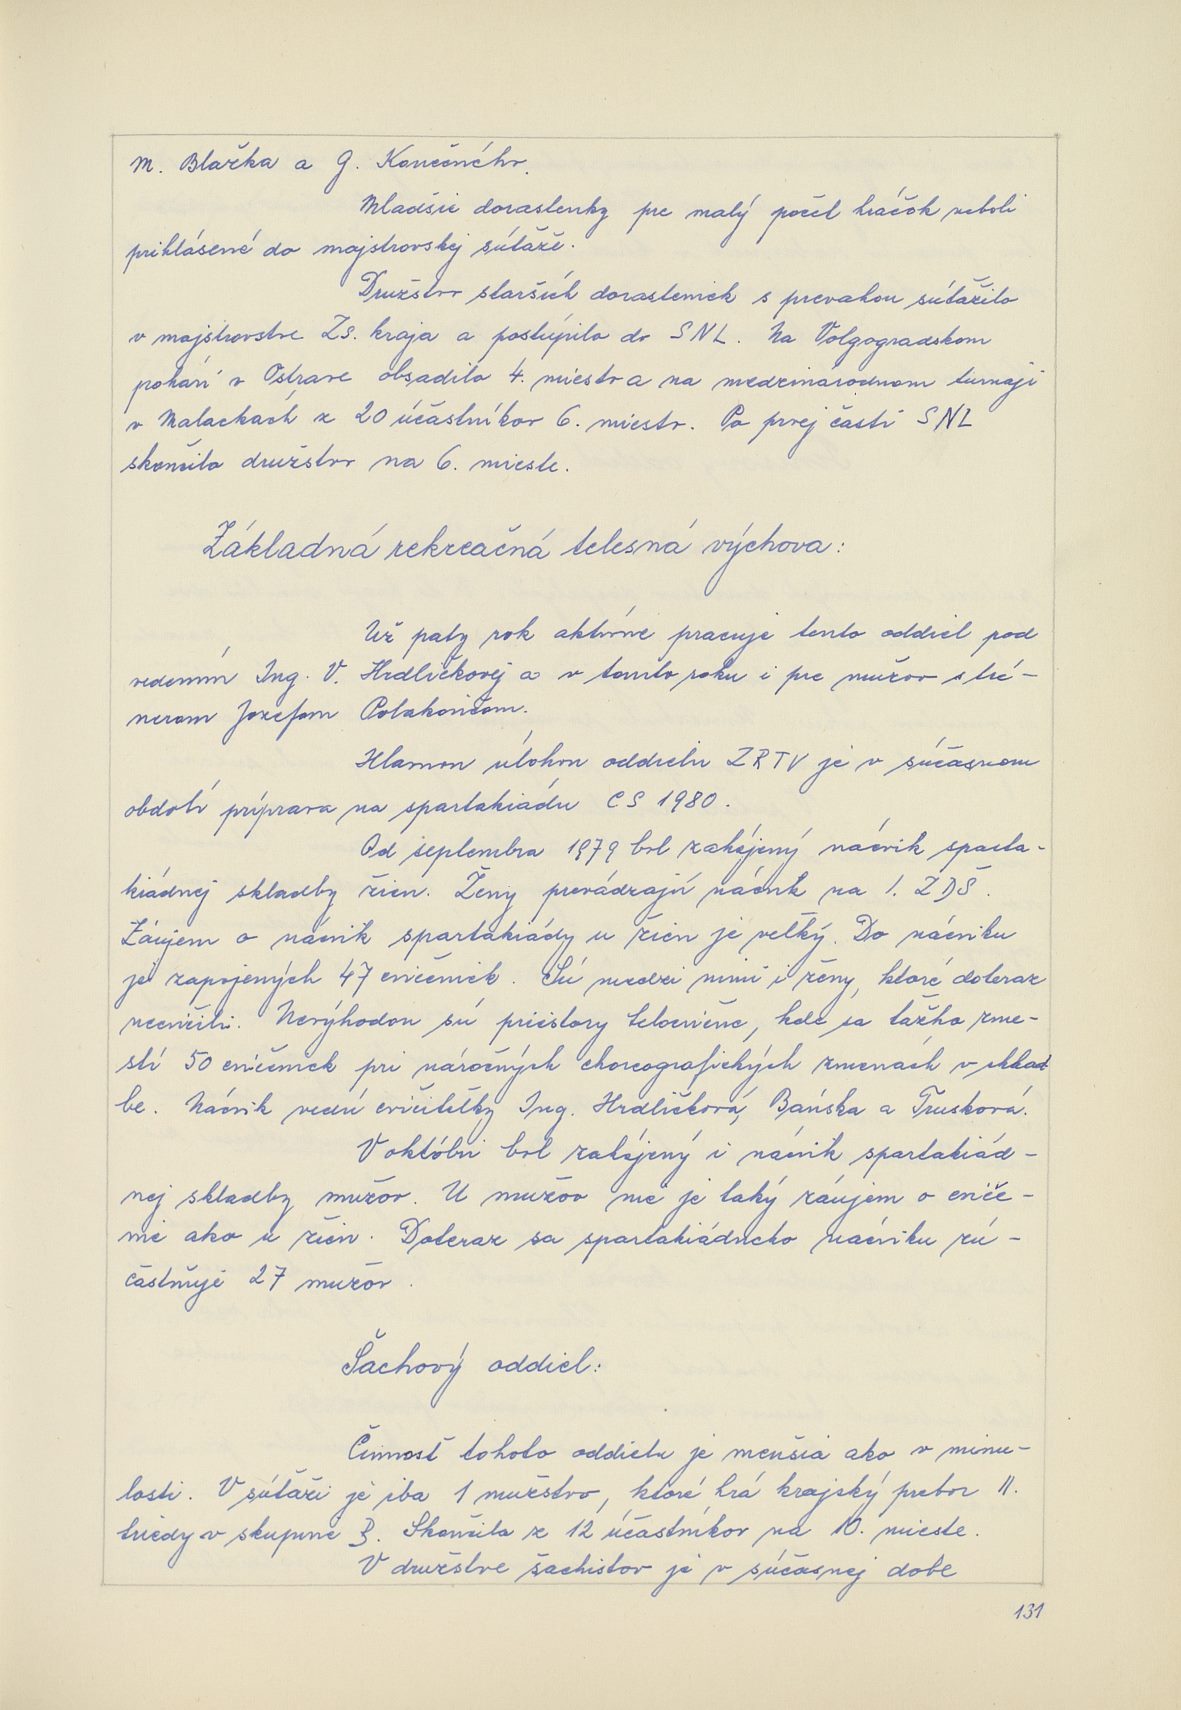 M. Blažka a G. Konečného.
Mladšie dorastenky pre malý počet hráčok neboli
prihlásené do majstrovskej súťaže.
Družstvo starších dorasteniek s prevahou súťažilo
v majstrovstve Zs. kraja a postúpilo do SNL. Na Volgogradskom
pohári v Ostrave obsadilo 4. miesto a na medzinárodnom turnaji
v Malackách z 20 účastníkov 6. miesto. Po prvej časti SNL
skončilo družstvo na 6. mieste.
Základná rekreačná telesná výchova:
Už piaty rok aktívne pracuje tento oddiel pod
vedením Ing. V. Hrdličkovej a v tomto roku i pre mužov s tré-
nerom Jozefom Polakovičom.
Hlavnou úlohou oddielu ZRTV je v súčasnom
období príprava na spartakiádu CS 1980.
Od septembra 1979 bol zahájený nácvik sparta-
kiádnej skladby žien. Ženy prevádzajú nácvik na I. ZDŠ.
Záujem o nácvik spartakiády u žien je veľký. Do nácviku
je zapojených 47 cvičeniek. Sú medzi nimi i ženy, ktoré doteraz
necvičili. Nevýhodou sú priestory telocvične, kde sa ťažko zme-
stí 50 cvičeniek pri náročných choreografických zmenách v sklad
be. Nácvik vedú cvičiteľky Ing. Hrdličková, Bańska a Trusková.
V októbri bol zahájený i nácvik spartakiád-
nej skladby mužov. U mužov nie je taký záujem o cviče-
nie ako u žien. Doteraz sa spartakiádneho nácviku zú-
častňuje 27 mužov.
Šachový oddiel:
Činnosť tohoto oddielu je menšia ako v minu-
losti. V súťaži je iba 1 mužstvo, ktoré hrá krajský prebor II.
triedy v skupine B. Skončilo z 12 účastníkov na 10. mieste.
V družstve šachistov je v súčasnej dobe
131